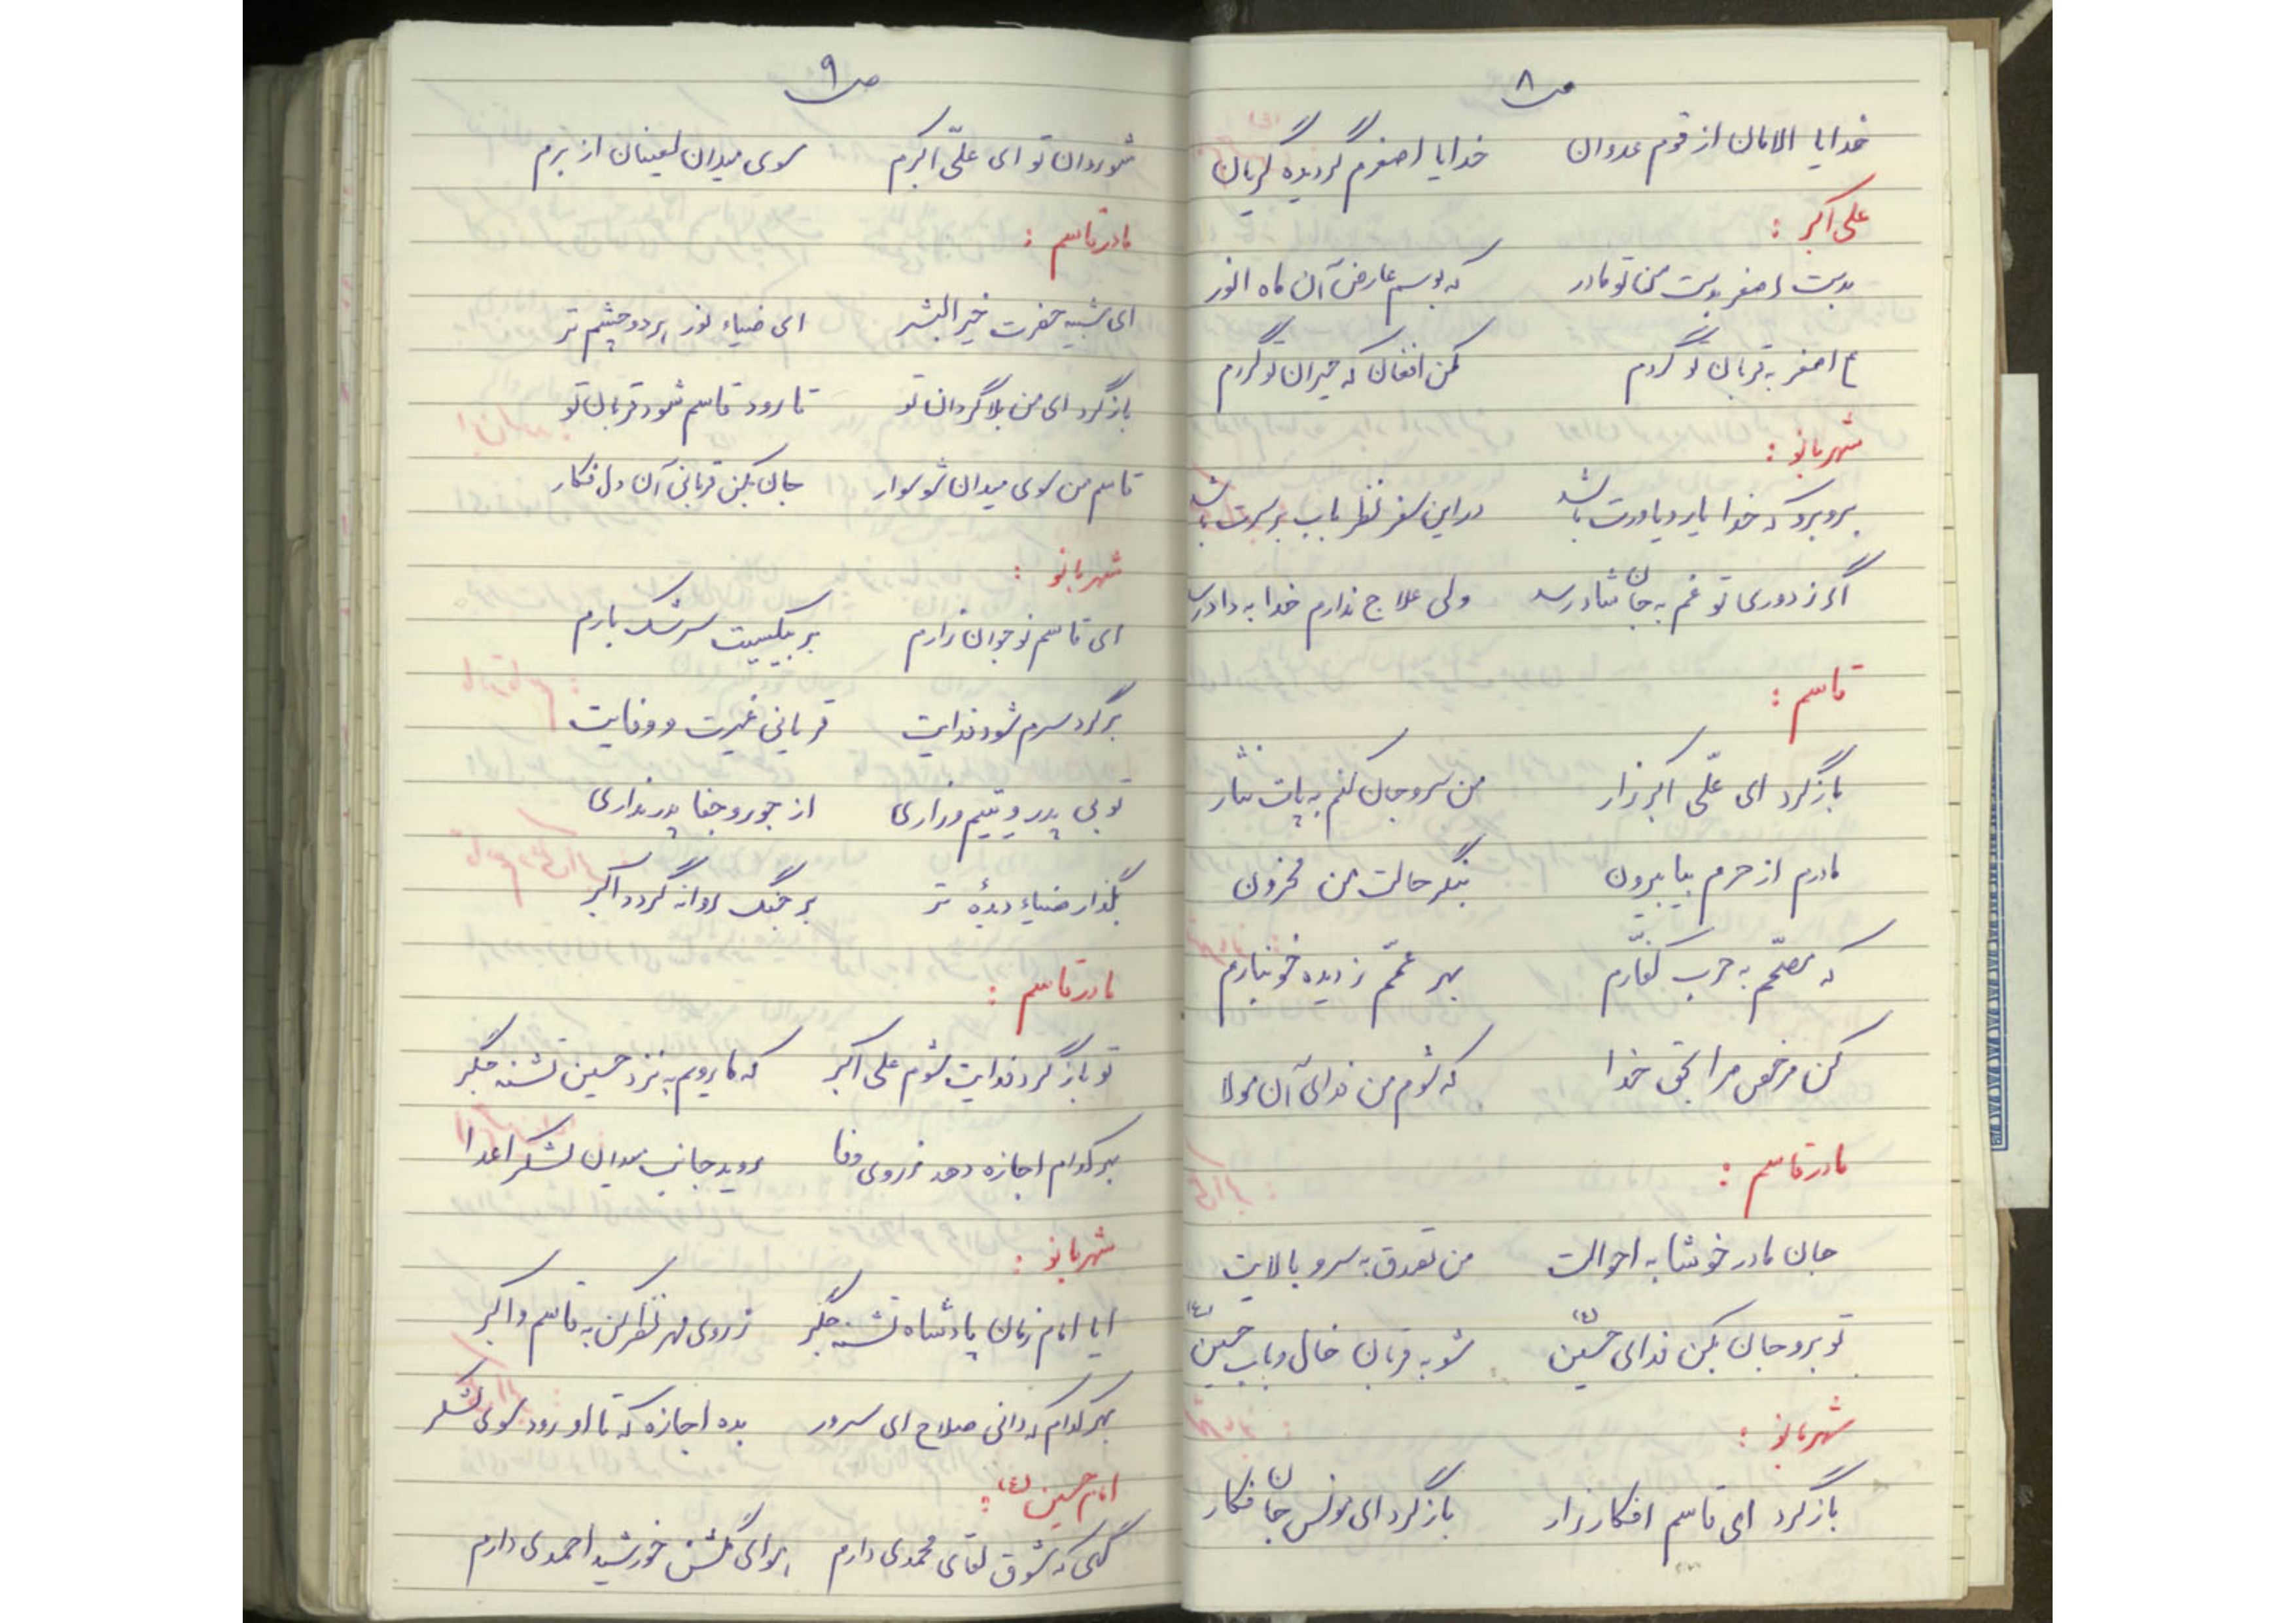 ص ۸
خدایا الامان از قوم عدوان خدایا اصغرم گردیده گریان
علی اکبر :
بدست اصغر بدست من تو مادر که بوسم عارض آن ماه انور
ع اصغر به قربان تو گردم مکن افغان که حیران تو گردم
شهربانو :
برو برو که خدا یار و یاورت باشد در این سفر نظر باب بر سرت باشد
اگر ز دوری تو غم به جان ما رسد ولی علاج ندارم خدا به داد رسد
قاسم :
بازگرد ای علّی اکبر زار من سر و جان کنم به پات نثار
مادرم از حرم بیا بیرون بنگر حالت من محزون
که مصمّم به حرب کفّارم بهر عمّم ز دیده خونبارم
کن مرخص مرا بحق خدا که شوم من فدای آن مولا
مادر قاسم :
جان مادر خوشا به احوالت من تصدق به سرو بالایت
تو برو جان بکن فدای حسین (ع) شو به قربان خال و باب حسین (ع)
شهربانو :
بازگرد ای قاسم افکار زار بازگرد ای مونس جان فکار
ص ۹
شو روان تو ای علّی اکبرم سوی میدان لعینان از برم
مادر قاسم :
ای شبیه حضرت خیر البشر ای ضیاء نور بر دو چشم تر
بازگرد ای من بلا گردان تو تا رود قاسم شود قربان تو
قاسم من سوی میدان شو سوار جان بکن قربانی آن دل فکار
شهربانو :
ای قاسم نوجوان زارم بر بیکسیت سرشک بارم
برگرد سرم شود فدایت قربانی غیرت و وفایت
تو بی پدر و یتیم و زاری از جور و جفا پدر نداری
بگذار ضیاء دیدهٔ تر بر جنگ روانه گردد اکبر
مادر قاسم :
تو بازگرد فدایت شوم علی اکبر که ما رویم به نزد حسین تشنه جگر
بهر کدام اجازه دهد ز روی وفا روید جانب میدان لشکر اعدا
شهربانو :
ایا امام زمان پادشاه تشنه جگر ز روی مهر نظر کن به قاسم و اکبر
بهر کدام که دانی صلاح ای سرور بده اجازه که تا او رود سوی لشکر
امام حسین (ع) :
گهی که شوق لقای محمدی دارم برای گلشن خورشید احمدی دارم